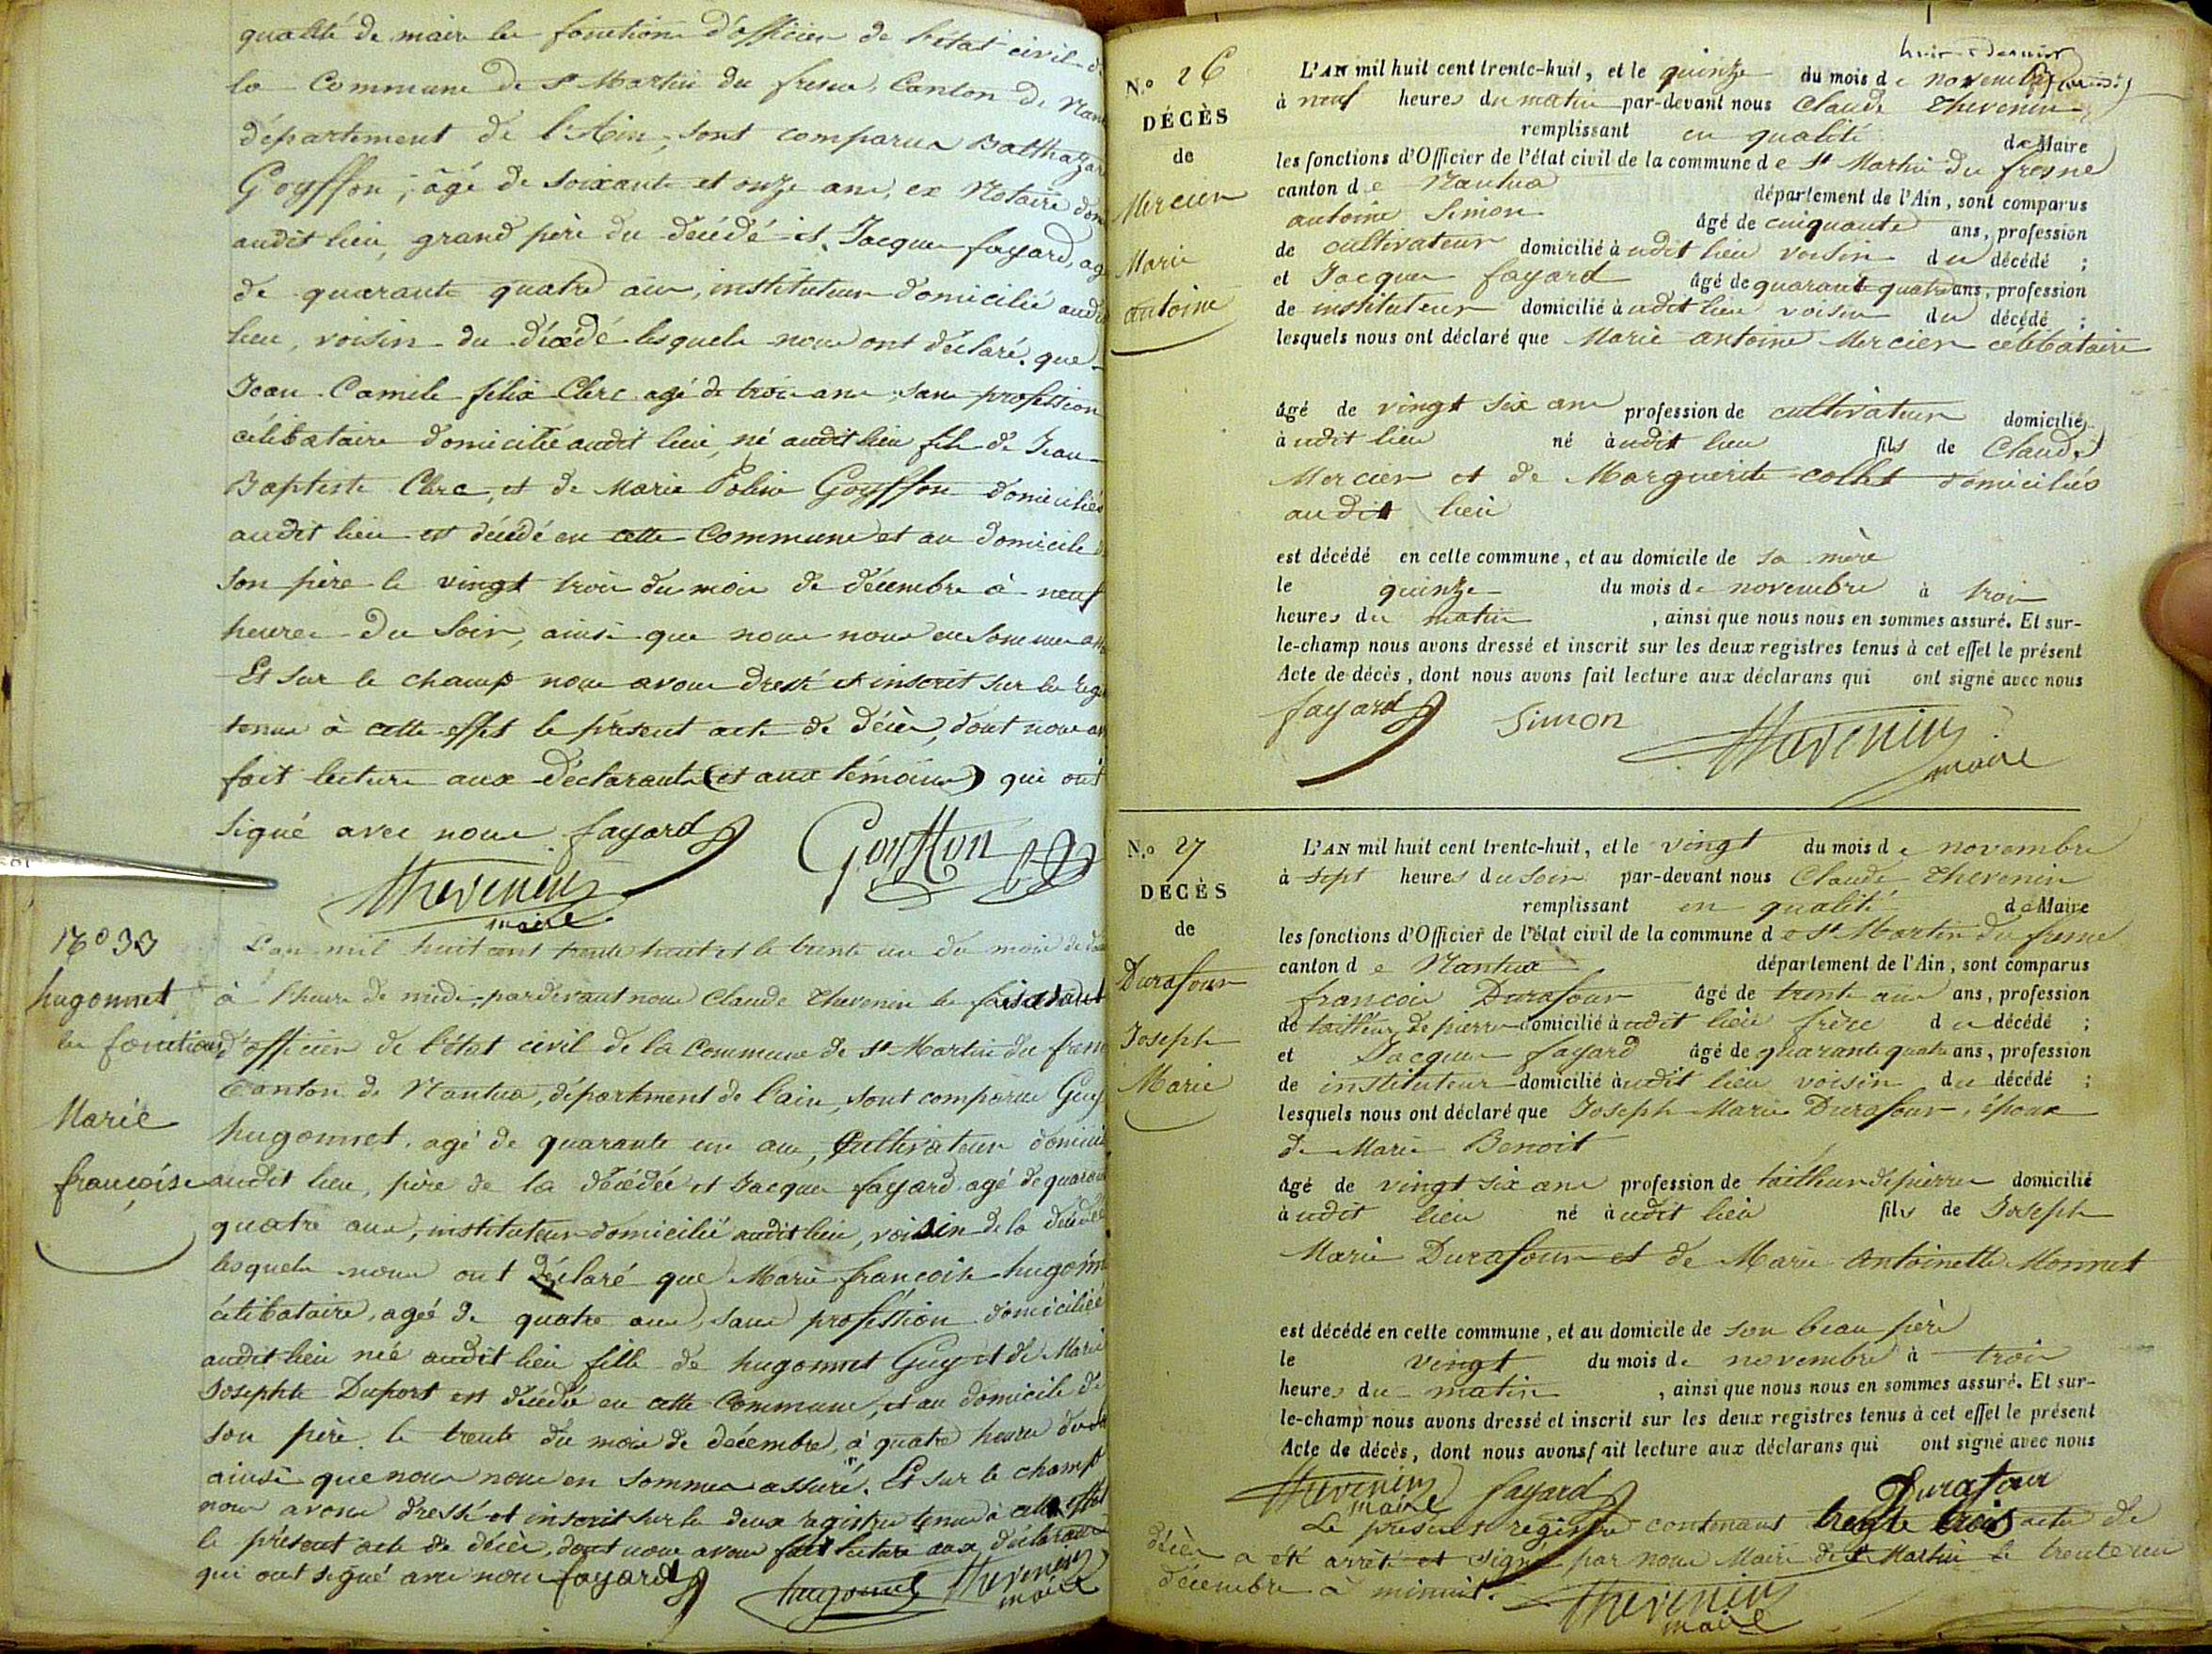 qualité de maire les fonctions d'officier de l'état civil d
la Commune de St Martin du fresne, Canton de Nan
département de l'Ain, sont comparus Balthazar
Goyffon, âgé de soixante et onze ans, ex Notaire dom
audit lieu, grand père du décédé et Jacques fayard, ag
de quarante quatre ans, instituteur domicilié audit
lieu, voisin du décédé lesquels nous ont déclaré que
Jean Camile félix Clerc agé de trois ans sans profession
célibataire domicilié audit lieu, né audit lieu fils de Jean
Baptiste Clerc, et de Marie Poline Goyffon domiciliés
audit lieu est décédé en cette Commune et au domicile d
son père le vingt trois du mois de décembre à neuf
heures du Soir, ainsi que nous nous en sommes ass
Et sur le champ nous avons dressé et inscrit sur les reg
tenus à cette effet le présent acte de décès, dont nous av
fait lecture aux déclarants (et aux témoins) qui ont
signé avec nous fayard Goyffon
Thevenin
maire
No 33
hugonnet
Marie
françoise
L'an mil huit cent trente huit et le trente un du mois de d
à l'heure de midi, pardevant nous Claude Thevenin le faisant
les fonctions d'officier de l'état civil de la Commune de St Martin du fresn
Canton de Nantua, département de l'ain, sont comparus Guy
hugonnet, agé de quarante un ans, Cultivateur domicil
audit lieu, père de la décédée et Jacques fayard agé de quarante
quatre ans, instituteur domicilié audit lieu, voisin de la décédée
lesquels nous ont déclaré que Marie françoise hugonn
célibataire, agée de quatre ans, sans profession domiciliée
audit lieu née audit lieu fille de hugonnet Guy et de Marie
Josephte Duport est décédée en cette Commune, et au domicile de
son père le trente du mois de décembre, à quatre heures du
ainsi que nous nous en sommes assuré. Et sur le champ
nous avons dressé et inscrit sur les deux registres tenus à cette effet
le présent acte de décès, dont nous avons fait lecture aux déclarans
qui ont signé avec nous fayard hugonnet Thevenin
maire
N.o 26
DÉCÈS
de
Mercier
Marie
antoine
L'AN mil huit cent trente-huit, et le quinze du mois de novembre
à neuf heures du matin par-devant nous Claude Thevenin
remplissant en qualité de Maire
les fonctions d'Officier de l'état civil de la commune de St Martin du fresne
canton de Nantua département de l'Ain, sont comparus
antoine Simon âgé de cinquante ans, profession
de cultivateur domicilié à udit lieu voisin du décédé ;
et Jacques fayard âgé de quarante quatre ans, profession
de instituteur domicilié à udit lieu voisin du décédé ;
lesquels nous ont déclaré que Marie antoine Mercier célibataire
âgé de vingt six ans profession de cultivateur domicilié
à udit lieu né à udit lieu fils de Claude
Mercier et de Marguerite collet domiciliés
audit lieu
est décédé en cette commune, et au domicile de sa mère
le quinze du mois de novembre à trois
heures du matin , ainsi que nous nous en sommes assuré. Et sur-
le-champ nous avons dressé et inscrit sur les deux registres tenus à cet effet le présent
Acte de décès, dont nous avons fait lecture aux déclarans qui ont signé avec nous
fayard Simon Thevenin
maire
N.o 27
DÉCÈS
de
Durafour
Joseph
Marie
L'AN mil huit cent trente-huit, et le vingt du mois de novembre
à sept heures du soir par-devant nous Claude Thevenin
remplissant en qualité de Maire
les fonctions d'Officier de l'état civil de la commune de St Martin du fresne
canton de Nantua département de l'Ain, sont comparus
françois Durafour âgé de trente ans ans, profession
de tailleur de pierre domicilié à udit lieu frère du décédé ;
et Jacques fayard âgé de quarante quatre ans, profession
de instituteur domicilié à udit lieu voisin du décédé ;
lesquels nous ont déclaré que Joseph Marie Durafour, époux
de Marie Benoit
âgé de vingt six ans profession de tailleur de pierre domicilié
à udit lieu né à udit lieu fils de Joseph
Marie Durafour et de Marie Antoinette Monnet
est décédé en cette commune, et au domicile de son beau père
le vingt du mois de novembre à trois
heures du matin , ainsi que nous nous en sommes assuré. Et sur-
le-champ nous avons dressé et inscrit sur les deux registres tenus à cet effet le présent
Acte de décès, dont nous avons fait lecture aux déclarans qui ont signé avec nous
Thevenin maire fayard Durafour
Le présent registre contenant trente trois actes de
décès a été arrêté et signé par nous Maire de St Martin le trente un
décembre à minuit.
Thevenin
maire